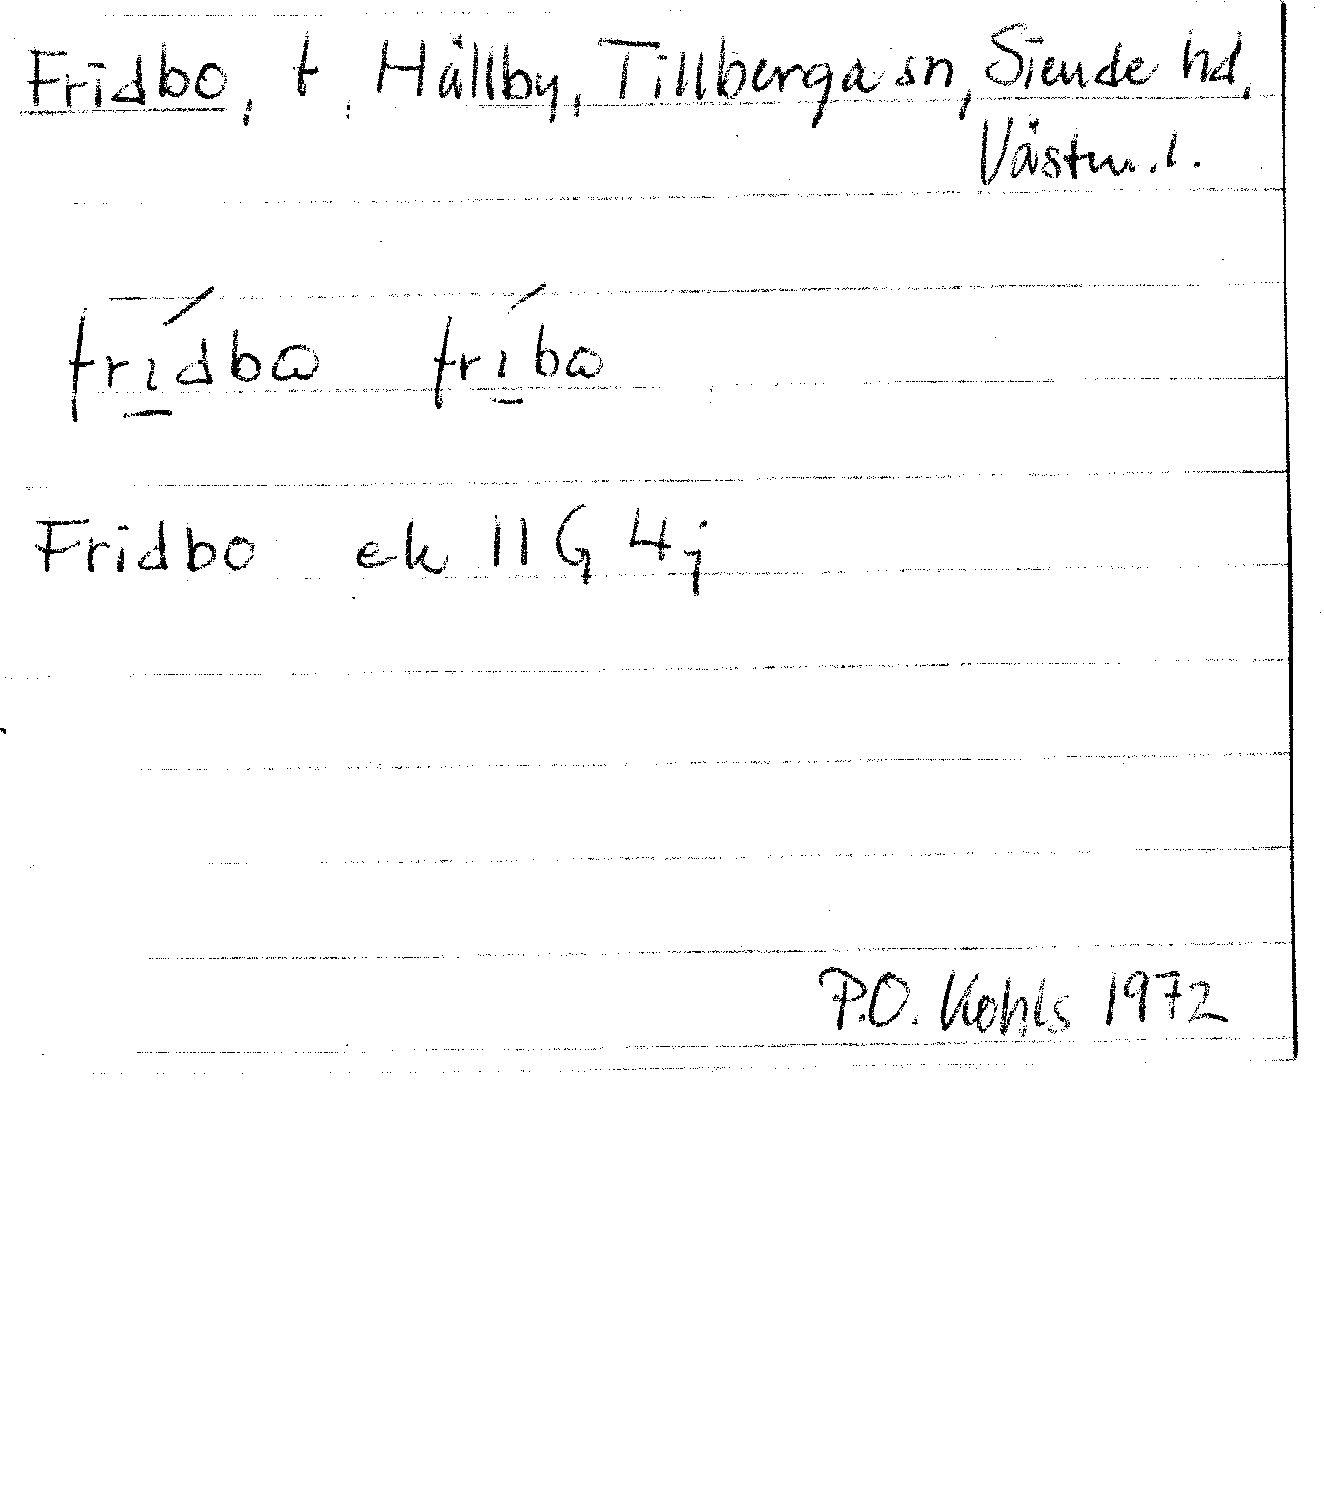 Fridbo, t, Hällby, Tillberga sn, Siende hd,
Västm. l.
frídbo fríbo
Fridbo ek 11 G 4j
P.O. Kohls 1972